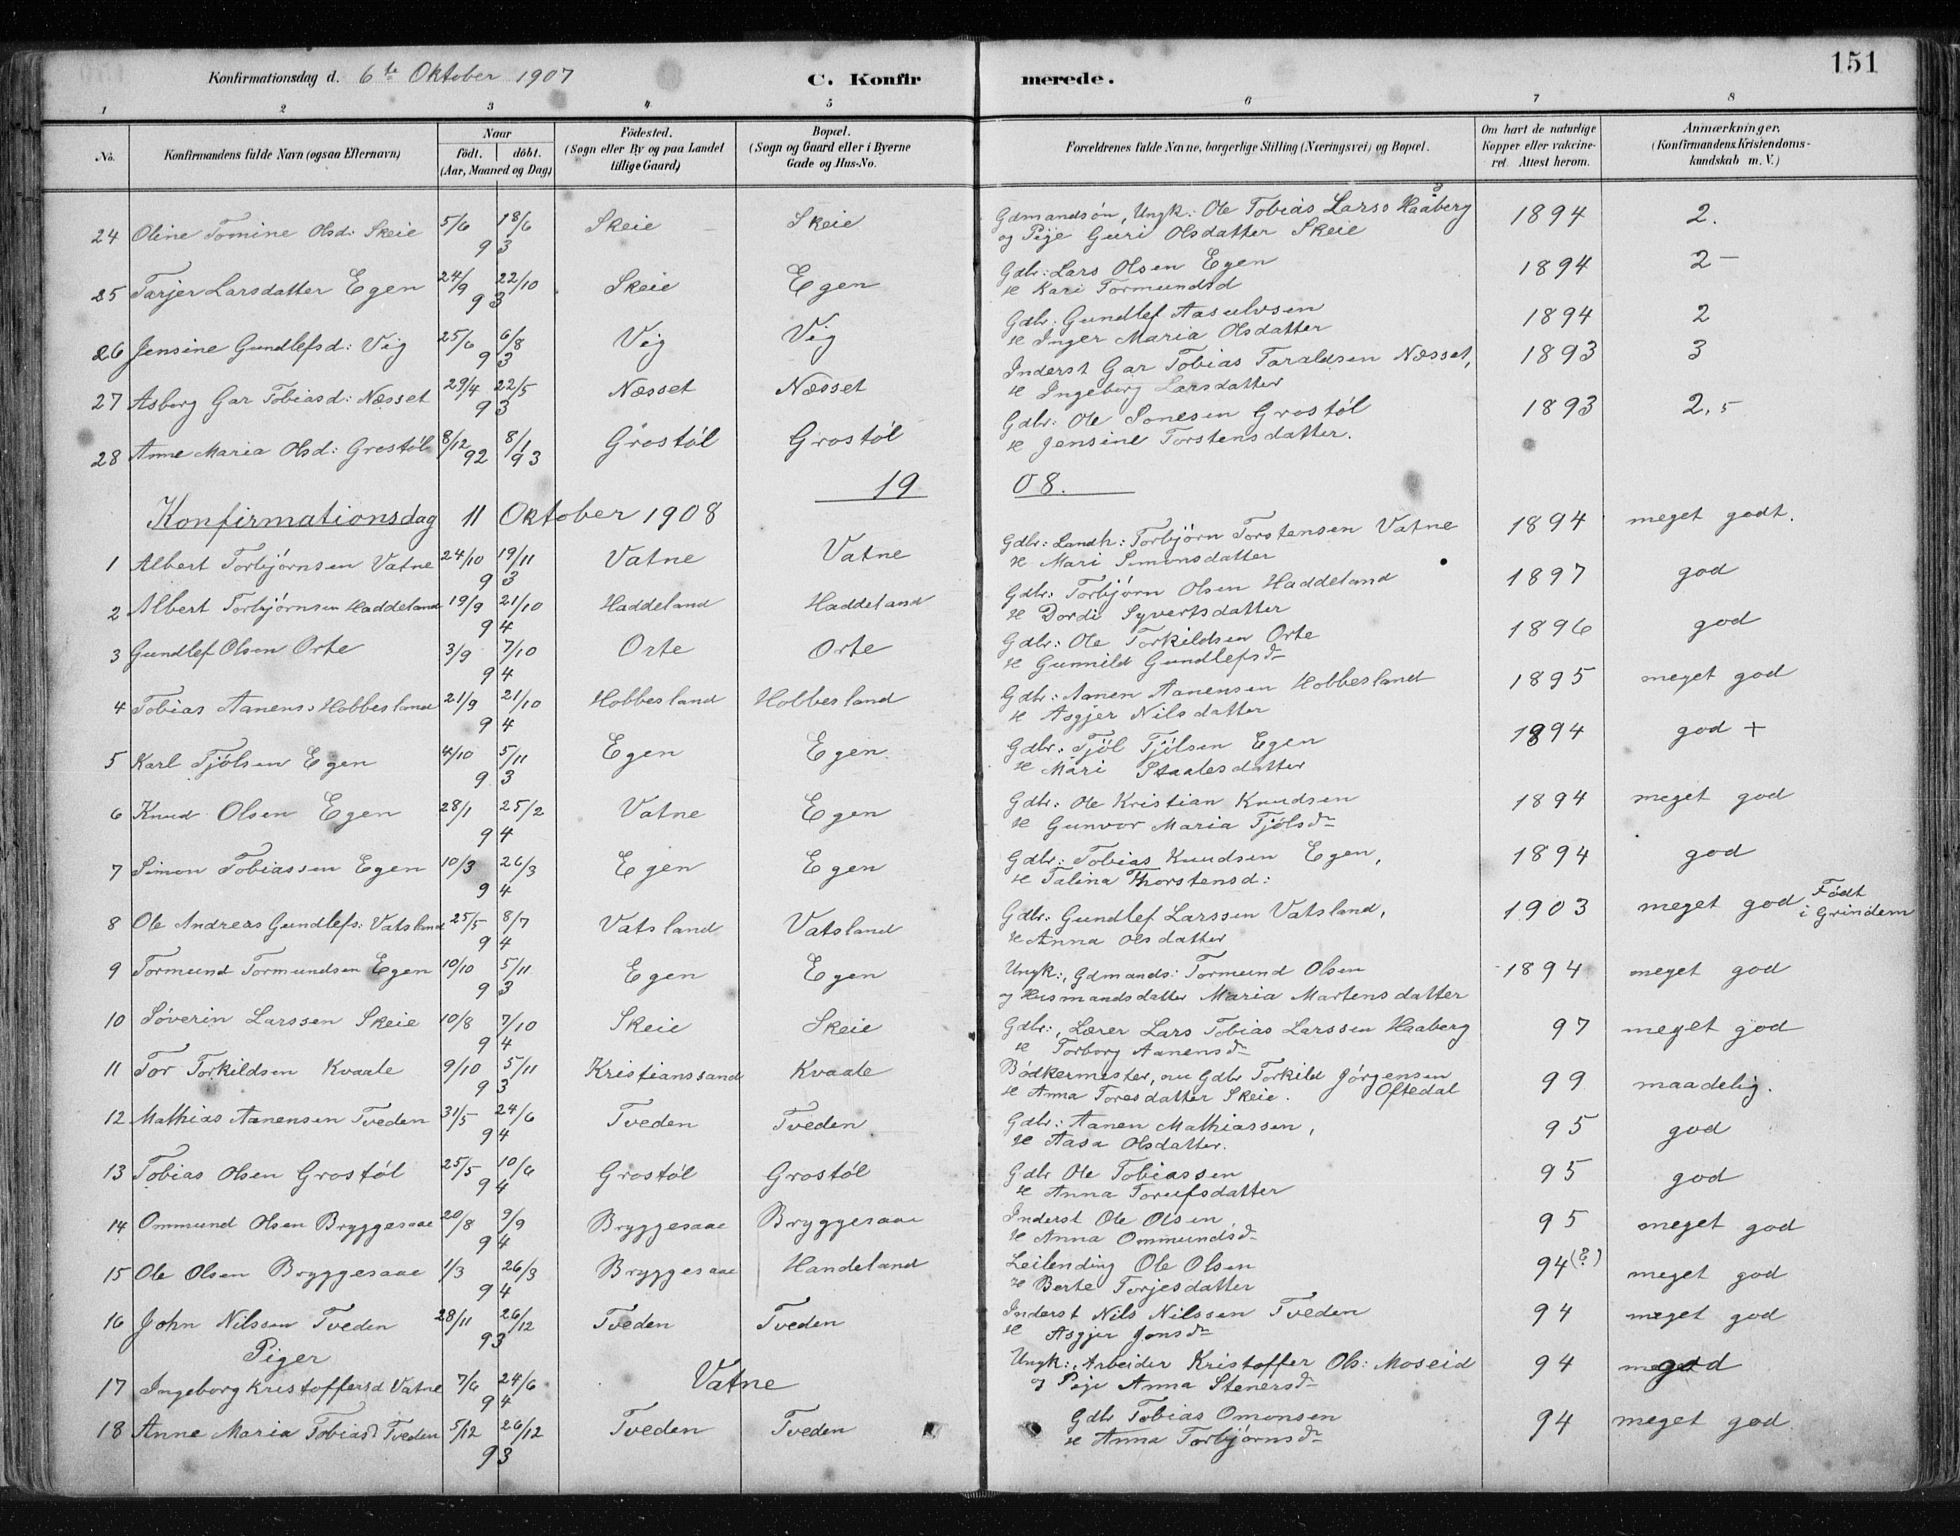 151
Konfirmationsdag d. 6te Oktober 1907 C. Konfirmerede.
1 2 3 4 5 6 7 8
No. Konfirmandens fulde Navn (ogsaa Efternavn) Naar födt. döbt. (Aar, Maaned og Dag) Födested. (Sogn eller By og paa Landet tillige Gaard) Bopæl. (Sogn og Gaard eller i Byerne Gade og Hus-No. Forældrenes fulde Navne, borgerlige Stilling (Næringsvei) og Bopæl. Om havt de naturlige Kopper eller vakcineret. Attest herom. Anmærkninger. (Konfirmandens Kristendomskundskab m. V.)
24 Oline Tomine Olsd: Skeie 5/6 18/6 93 Skeie Skeie Gdmandsön, Ungk: Ole Tobias Larss Haaberg 1894 2.
og Pige Guri Olsdatter Skeie
25 Tarjer Larsdatter Egen 24/9 22/10 93 Skeie Egen Gdbr: Lars Olsen Egen 1894 2-
H Kari Tormundsd
26 Jensine Gundlefsd: Vig 25/6 6/8 93 Vig Vig Gdbr: Gundlef Aasulvsen 1894 2
H Inger Maria Olsdatter
27 Asborg Gar Tobiasd: Næsset 29/4 22/5 93 Næsset Næsset Inderst Gar Tobias Taraldsen Næsset, 1893 3
H Ingeborg Larsdatter
28 Anne Maria Olsd: Grostöl 8/12 92 8/1 93 Grostöl Grostöl Gdbr: Ole Jonesen Grostöl 1893 2,5
H Jensine Torstensdatter.
19 08.
Konfirmationsdag 11 Oktober 1908
1 Albert Torbjörnsen Vatne 24/10 19/11 93 Vatne Vatne Gdbr: Landh: Torbjörn Torstensen Vatne 1894 meget godt.
H Mari Simonsdatter
2 Albert Torbjörnsen Haddeland 19/9 21/10 94 Haddeland Haddeland Gdbr: Torbjörn Olsen Haddeland 1897 god
H Dordi Syvertsdatter
3 Gundlef Olsen Orte 3/9 7/10 94 Orte Orte Gdbr: Ole Torkildsen Orte 1896 god
H Gunnild Gundlefsdr
4 Tobias Aanens: Hobbesland 21/9 21/10 94 Hobbesland Hobbesland Gdbr: Aanen Aanensen Hobbesland 1895 meget god
H Asgjer Nilsdatter
5 Karl Tjölsen Egen 4/10 5/11 93 Egen Egen Gdbr: Tjöl Tjölsen Egen 1894 god +
H Mari Staalesdatter
6 Knud Olsen Egen 28/1 25/2 94 Vatne Egen Gdbr: Ole Kristian Knudsen 1894 meget god
H Gunvor Maria Tjölsdr
7 Simon Tobiassen Egen 10/3 26/3 94 Egen Egen Gdbr: Tobias Knudsen Egen, 1894 god
H Talina Thorstensd:
8 Ole Andreas Gundlefs: Vatsland 25/5 8/7 94 Vatsland Vatsland Gdbr: Gundlef Larssen Vatsland, 1903 meget god Födt i Grindem
H Anna Olsdatter
9 Tormund Tormundsen Egen 10/10 5/11 93 Egen Egen Ungk:, Gdmands: Tormund Olsen 1894 meget god
og Husmandsdatter Maria Martensdatter
10 Söverin Larssen Skeie 10/8 7/10 94 Skeie Skeie Gdbr:, Lærer Lars Tobias Larssen Haaberg 97 meget god
H Torborg Aanensdr
11 Tor Torkildsen Kvaale 9/10 5/11 93 Kristianssand Kvaale Bödkermester, nu Gdbr Torkild Jörgensen Oftedal 99 maadelig.
H Anna Toresdatter Skeie.
12 Mathias Aanensen Tveden 31/5 24/6 94 Tveden Tveden Gdbr: Aanen Mathiassen, 95 god
H Aasa Olsdatter.
13 Tobias Olsen Grostöl 25/5 10/6 94 Grostöl Grostöl Gdbr Ole Tobiassen 95 god
H Anna Torufsdatter
14 Ommund Olsen Bryggesaae 20/8 9/9 94 Bryggesaae Bryggesaae Inderst Ole Olsen 95 meget god
H Anna Ommundsdr
15 Ole Olsen Bryggesaae 1/3 26/3 94 Bryggesaae Handeland Leilending Ole Olsen 94(?) meget god
H Berte Torjesdatter
16 John Nilssen Tveden 28/11 26/12 93 Tveden Tveden Inderst Nils Nilssen Tveden 94 meget god
H Asgjer Jonsdr
Piger
17 Ingeborg Kristoffersd Vatne 7/6 24/6 94 Vatne Ungk:, Arbeider Kristoffer Ols: Moseid 94 god
og Pige Anna Stenersdr
18 Anne Maria Tobiasd Tveden 5/12 26/12 93 Tveden Tveden Gdbr Tobias Omonsen 94 meget god
H Anna Torbjörnsdr